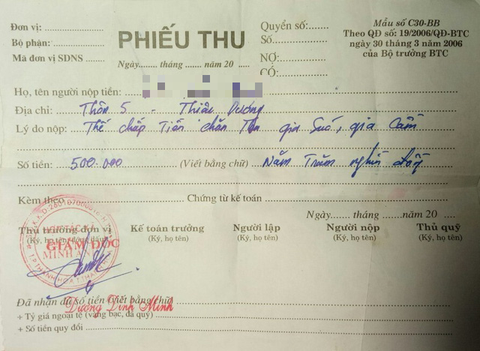 Đơn vị:
Bộ phận:
Mã đơn vị SDNS
PHIẾU THU
Ngày...... tháng ...... năm 20 .....
Quyển số:
Số
NỢ:
CÓ:
Mẫu số C30-BB
Theo QĐ số: 19/2006/QĐ-BTC
ngày 30 tháng 3 năm 2006
của Bộ trưởng BTC
Họ, tên người nộp tiền:
Địa chỉ: Thôn 5 - Thiệu Dương
Lý do nộp: Thế chấp Tiền chăn gia Súc, gia Cầm
Số tiền: 500.000 (Viết bằng chữ) Năm Trăm nghìn đồng
Kèm theo Chứng từ kế toán
Ngày...... tháng ...... năm 20
Thủ trưởng đơn vị Kế toán trưởng Người lập Người nộp Thủ quỹ
(Ký, họ tên) (Ký, họ tên) (Ký, họ tên) (Ký, họ tên)
GIÁM ĐỐC
Đã nhận đủ số tiền (Viết bằng chữ)
Dương Đình Minh
+ Tỷ giá ngoại tệ (vàng bạc, đá quý)
+ Số tiền quy đổi